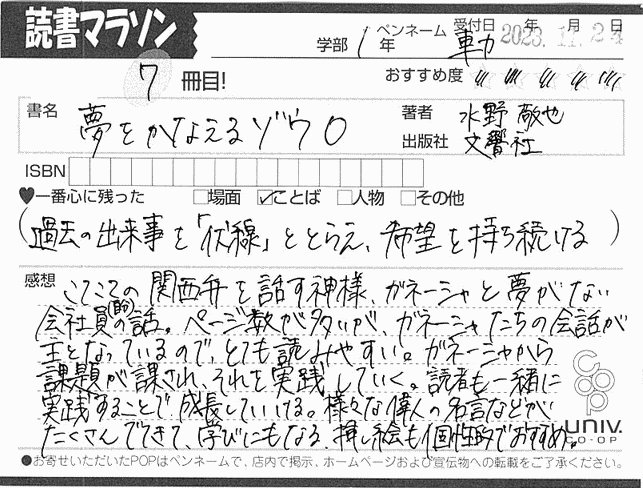 読書マラソン
学部 1年 ペンネーム 動 受付日 2023.11.24 年 月 日
7 冊目! おすすめ度
書名 夢をかなえるゾウ0 著者 水野敬也
出版社 文響社
ISBN
♥一番心に残った □場面 ☑ことば □人物 □その他
(過去の出来事を「伏線」ととらえ、希望を持ち続ける)
感想 こてこての関西弁を話す神様、ガネーシャと夢がない
会社員(的)の話。ページ数が多いが、ガネーシャたちの会話が
主となっているので、とても読みやすい。ガネーシャから
課題が課され、それを実践していく。読者も一緒に
実践することで成長していける。様々な偉人の名言などが
たくさんでてきて、学びにもなる。挿し絵も個性的でおすすめ。
coop
univ.
CO-OP
●お寄せいただいたPOPはペンネームで、店内で掲示、ホームページおよび宣伝物への転載をご了承ください。